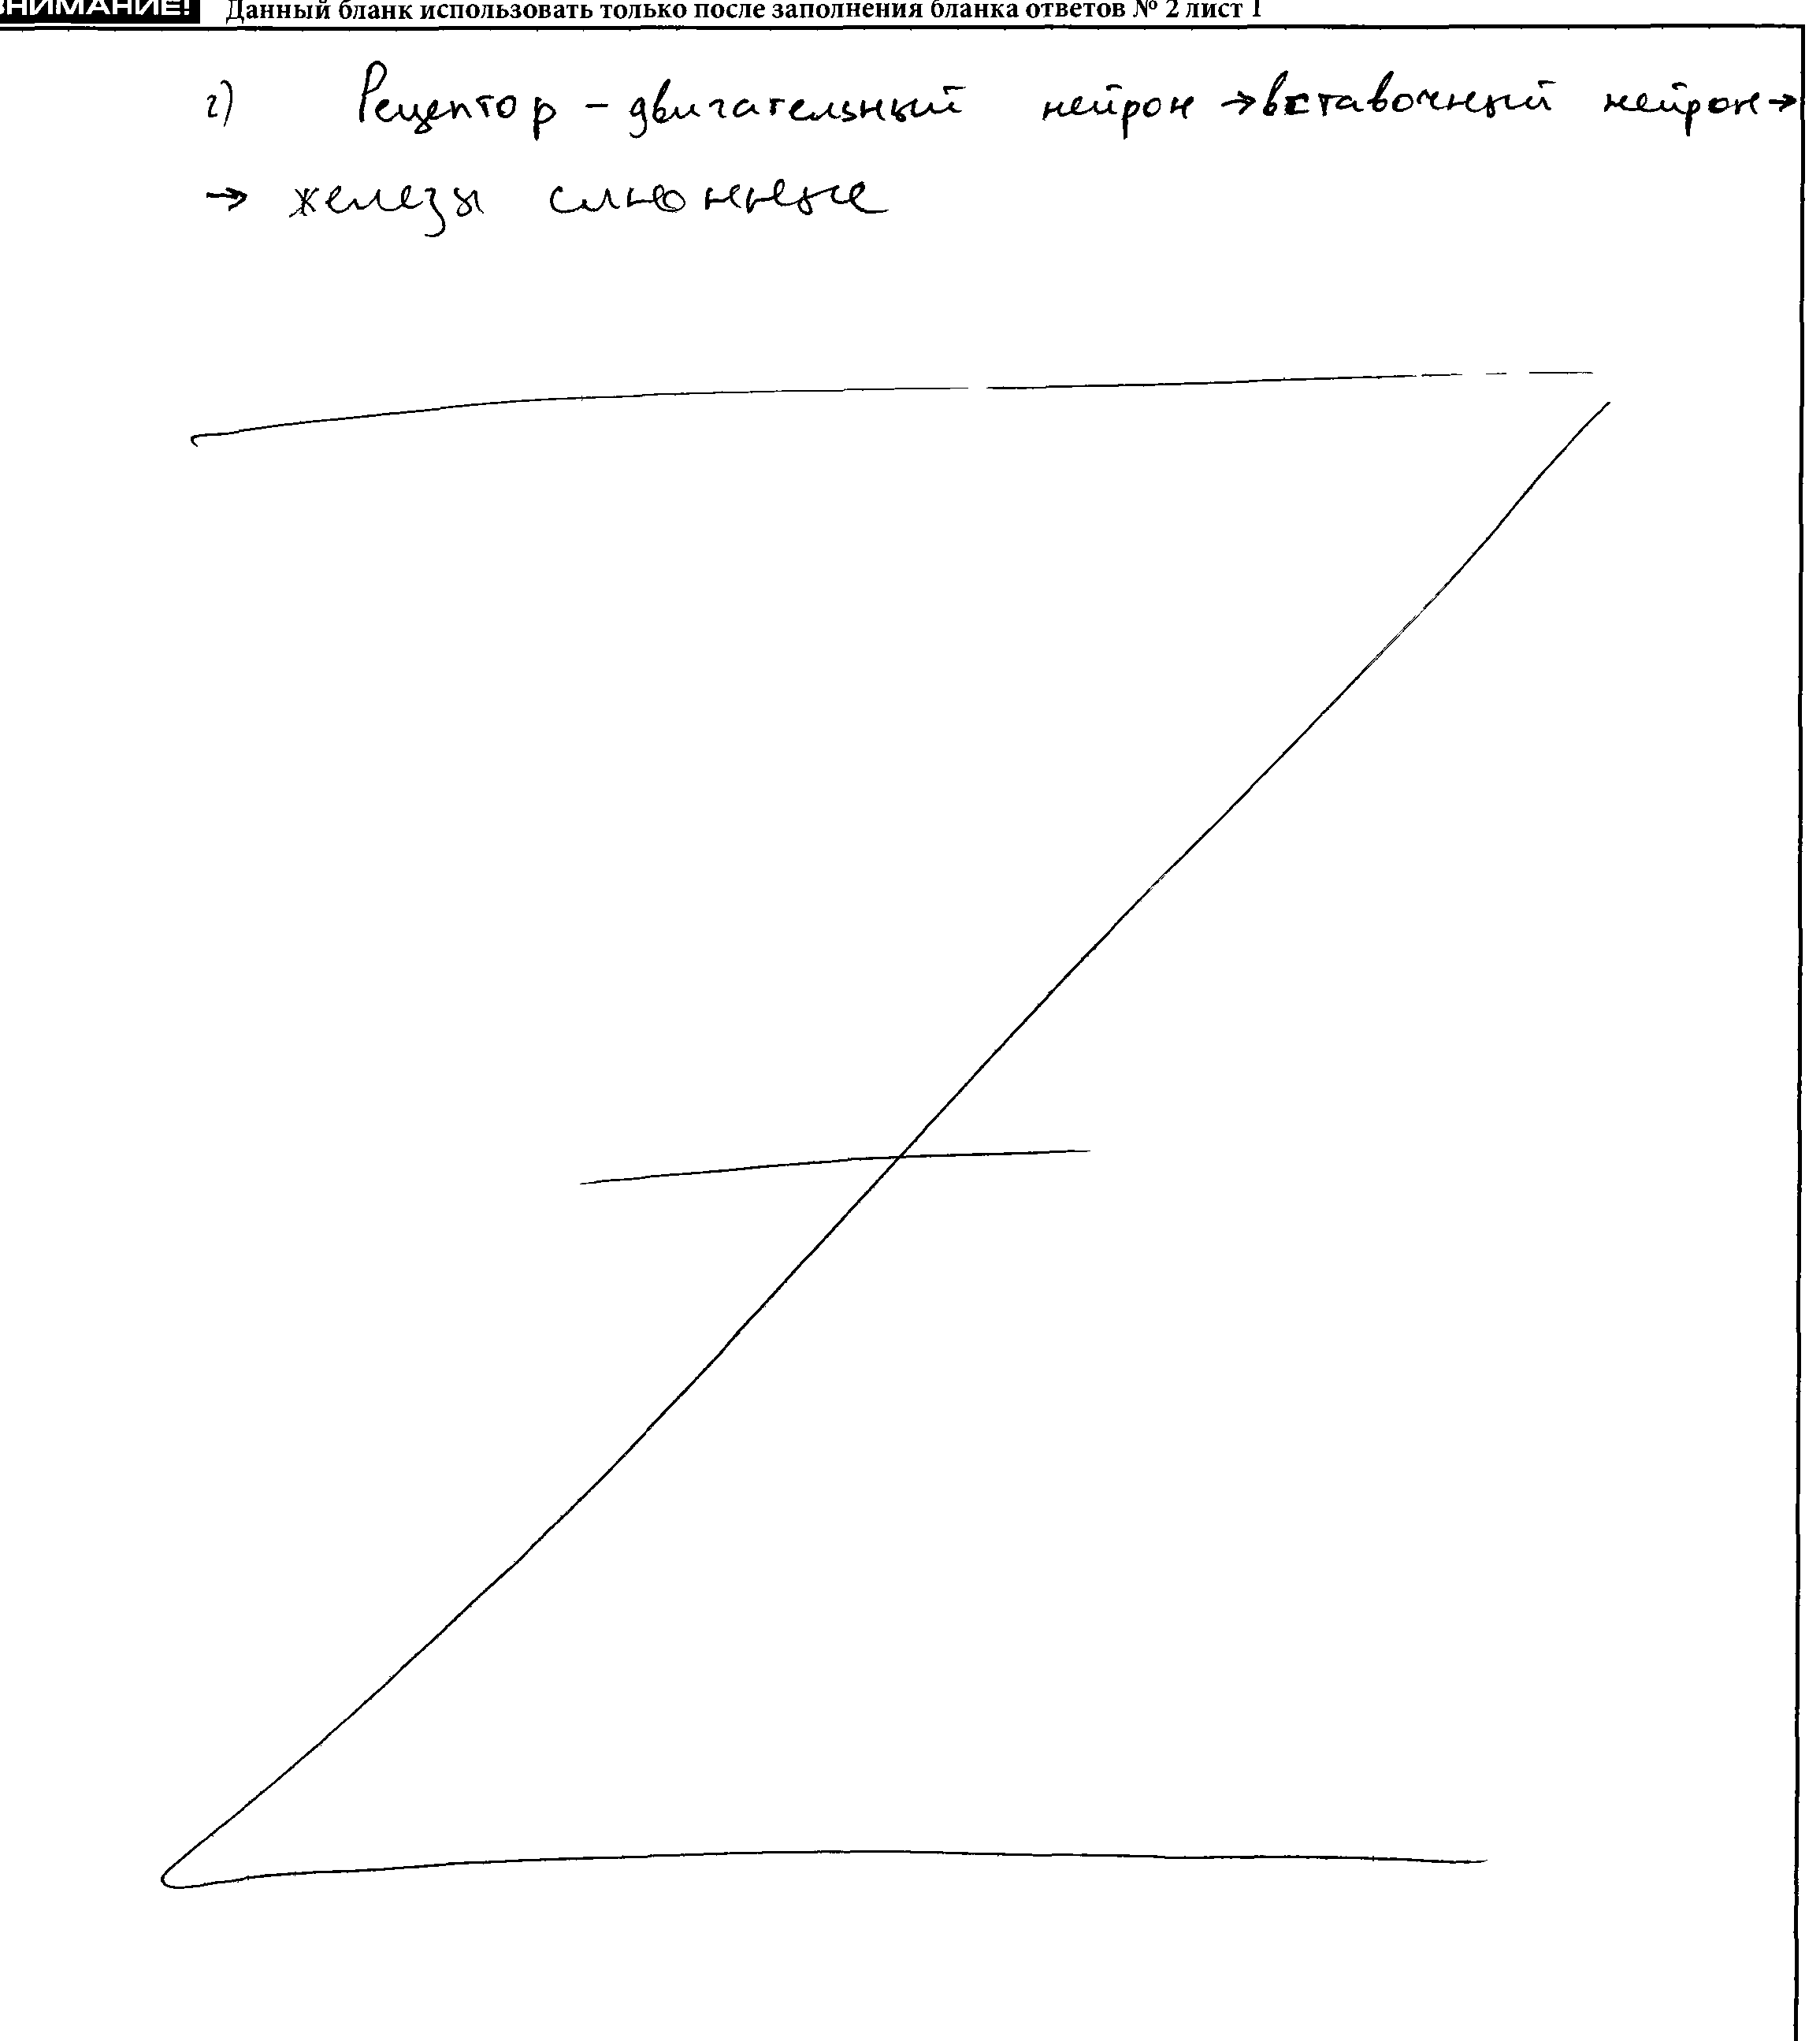 ВНИМАНИЕ! Данный бланк использовать только после заполнения бланка ответов № 2 лист 1
г) Рецептор - двигательный нейрон → вставочный нейрон →
→ железы слюнные